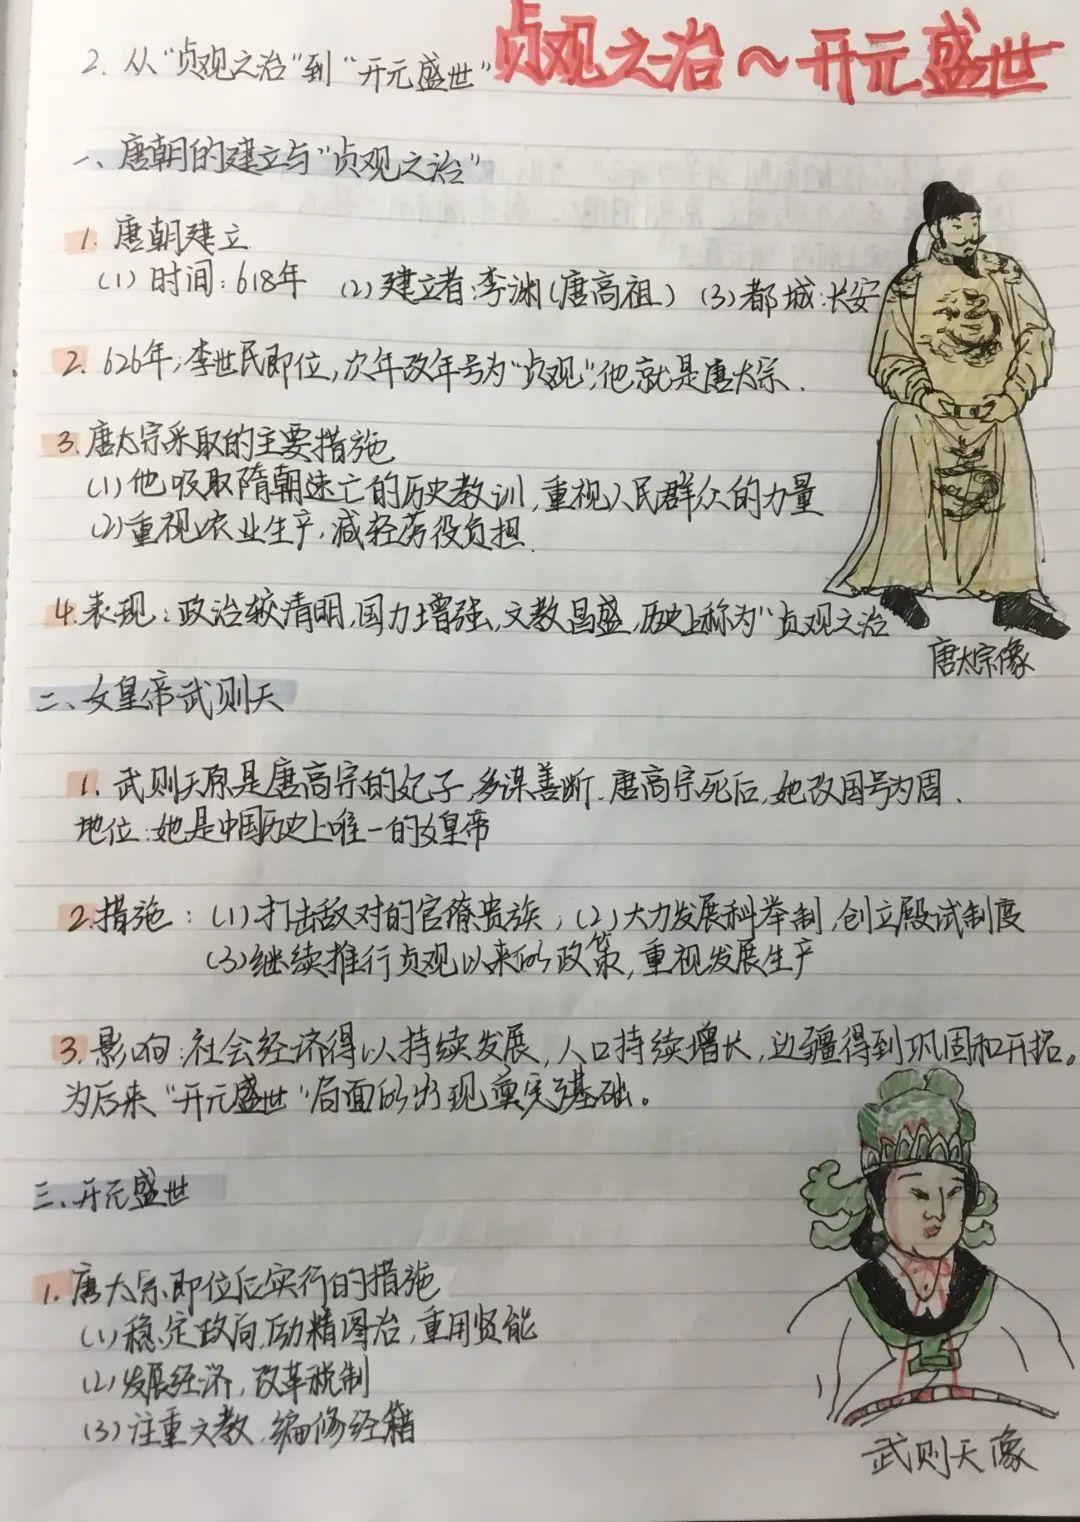 贞观之治～开元盛世
2. 从“贞观之治”到“开元盛世”
一、唐朝的建立与“贞观之治”
1. 唐朝建立
(1) 时间：618年 (2) 建立者：李渊(唐高祖) (3) 都城：长安
2. 626年，李世民即位，次年改年号为“贞观”，他就是唐太宗．
3. 唐太宗采取的主要措施
(1) 他吸取隋朝速亡的历史教训，重视人民群众的力量
(2) 重视农业生产，减轻劳役负担．
4. 表现：政治较清明，国力增强，文教昌盛，历史上称为“贞观之治
唐太宗像
二、女皇帝武则天
1. 武则天原是唐高宗的妃子，多谋善断．唐高宗死后，她改国号为周．
地位：她是中国历史上唯一的女皇帝
2. 措施：(1) 打击敌对的官僚贵族；(2) 大力发展科举制，创立殿试制度
(3) 继续推行贞观以来的政策，重视发展生产
3. 影响：社会经济得以持续发展，人口持续增长，边疆得到巩固和开拓。
为后来“开元盛世”局面的出现奠定了基础。
三、开元盛世
1. 唐太宗即位后实行的措施
(1) 稳定政局，励精图治，重用贤能
(2) 发展经济，改革税制
(3) 注重文教，编修经籍
武则天像